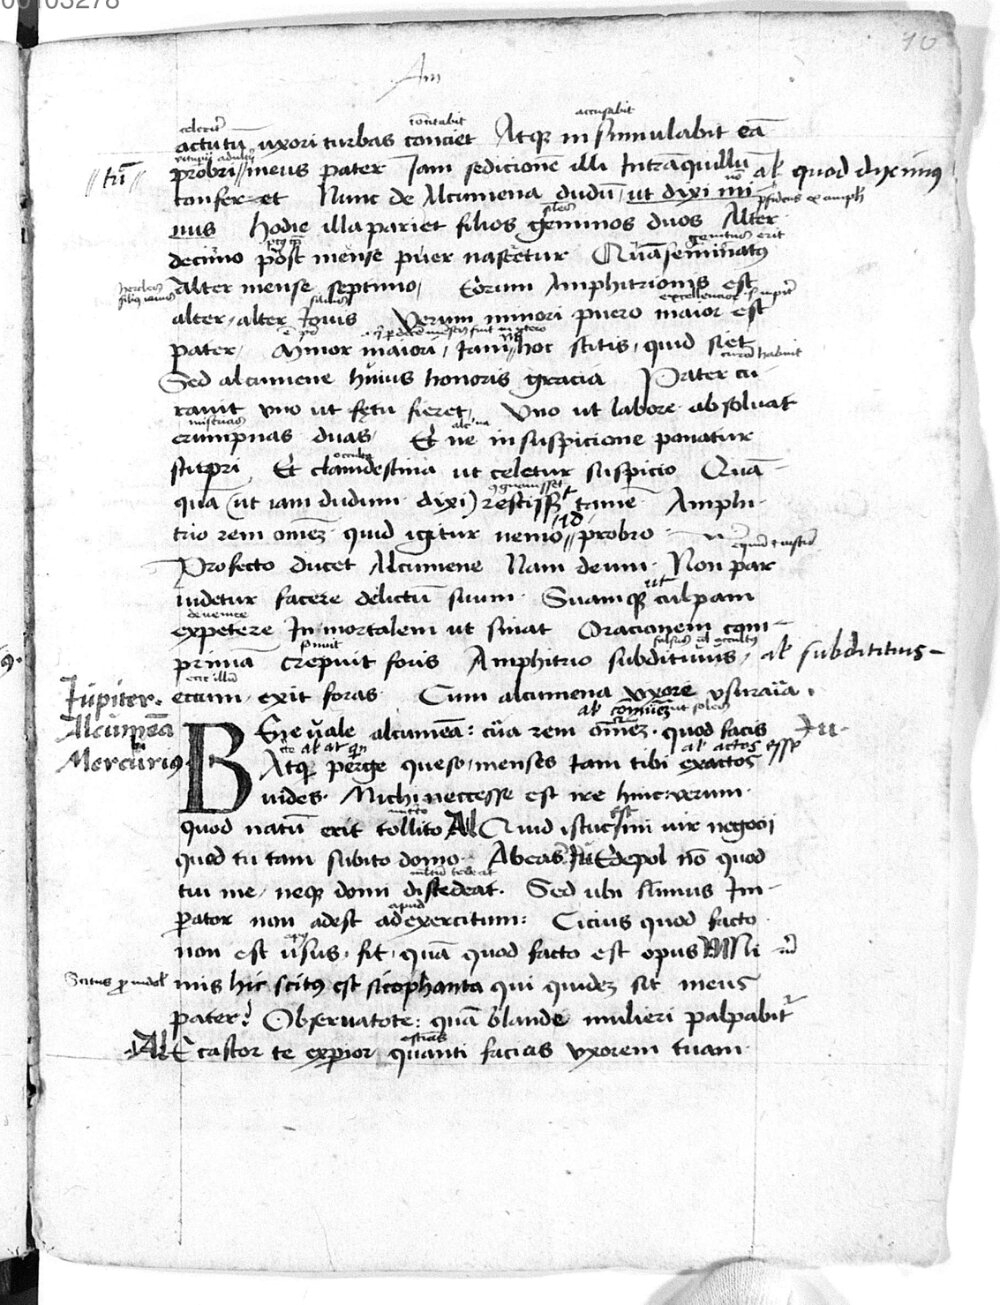 00103278
10
Am
accusabit
concitabit
celerit
actutū uxori turbas conciet Atq insimulabit eā
probri meus pater Iam sedicionē illi Intrāquillū al quod diximus
tū
confer et Nunc de Alcumena dudū ut dixi mi
nus Hodie illa pariet filios geminos duos Alter
decimo post mense puer nascetur Quā seminatus
Alter mense septimo Eorum Amphitrionis est
alter alter Iovis Verum minori puero maior est
pater Minor maiori Iam hoc scitis quid siet
Sed alcumene huius honoris gracia Pater cu
ravit uno ut fętu fieret Uno ut labore absolvat
erumpnas duas Et ne in suspicione ponatur
stupri Et clamdestina ut celetur suspicio Quā
quā (ut iam dudum dixi) resciss& tamē Amphi
trio rem omēz quid igitur nemo id probro
Profecto ducet Alcumene Nam deum Non par
videtur facere delictū suum Suamq ut culpam
expetere In mortalem ut sinat Oracionem com
primā crepuit foris Amphitrio subditivus al subdititius
eccum exit foras Cum alcumena uxore usuraria
Iupiter
Alcumēa
Mercurius
al comūez
Bene vale alcumēa : cūa rem omēz quod facis Iu
al at al actos esse
Atq perge queso menses iam tibi exactos
vides Michi neccesse est ire hinc verum
quod natū erit tollito Al Quid istuc est mi vir negocii
quod tu tam subito domo Abeas Iu Edepol nō quod
tui me neq domi distedeat Sed ubi sūmus Im
pator non adest ad exercitum : Cicius quod facto
apud
non est usus fit quā quod facto est opus M Ni
mis hic scitus est sicophanta qui quidez sit meus
pater Observatote : quā blande mulieri palpabit
Al Ecastor te experior quanti facias uxorem tuam